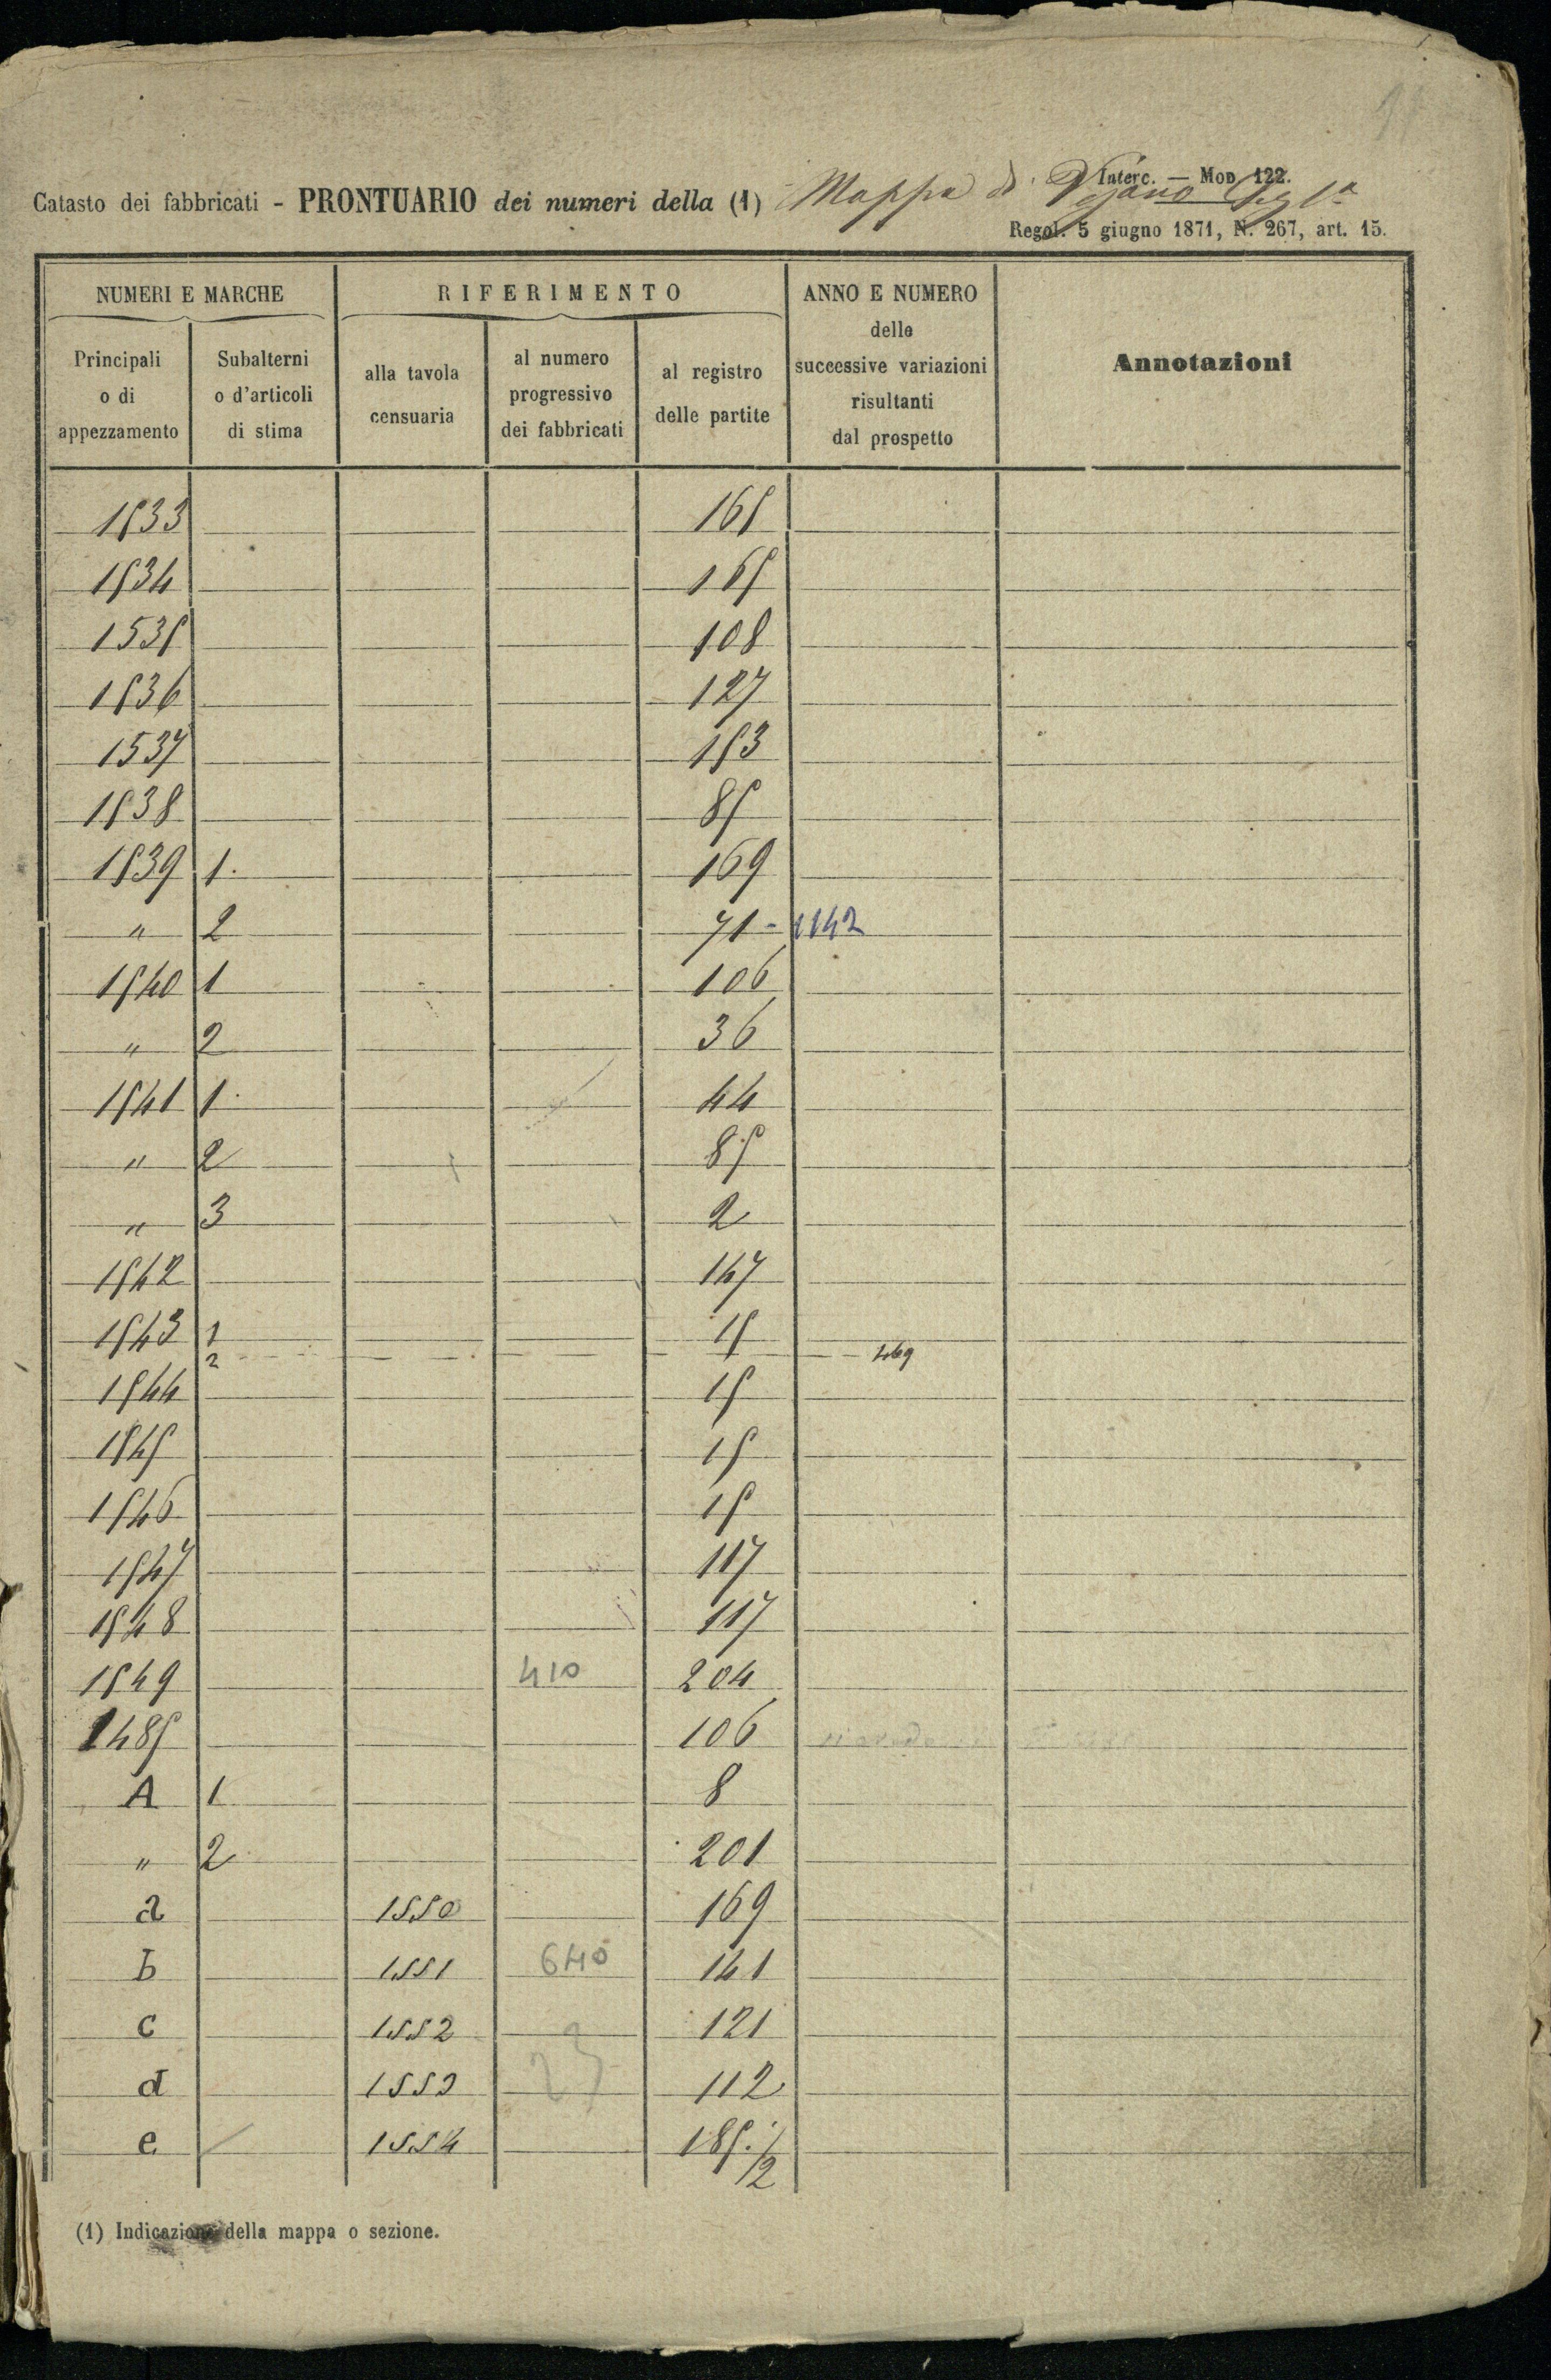 Interc. — Mod. 122.
Catasto dei fabbricati - PRONTUARIO dei numeri della (1) Mappa di Vejano Sez 1ª
Regol. 5 giugno 1871, N. 267, art. 15.
NUMERI E MARCHE
RIFERIMENTO
ANNO E NUMERO
delle
successive variazioni
risultanti
dal prospetto
Annotazioni
Principali
o di
appezzamento
Subalterni
o d'articoli
di stima
alla tavola
censuaria
al numero
progressivo
dei fabbricati
al registro
delle partite
1533 165
1534 165
1535 108
1536 127
1537 153
1538 85
1539 1. 169
" 2 71 - 1142
1540 1 106
" 2 36
1541 1. 44
" 2 85
" 3 2
1542 147
1543 1 15
2 469
1544 15
1545 15
1546 15
1547 117
1548 117
1549 410 204
1485 106
A 1 8
" 2 201
a 1550 169
b 1551 640 141
c 1552 121
d 1553 23 112
e 1554 185.1/2
(1) Indicazione della mappa o sezione.